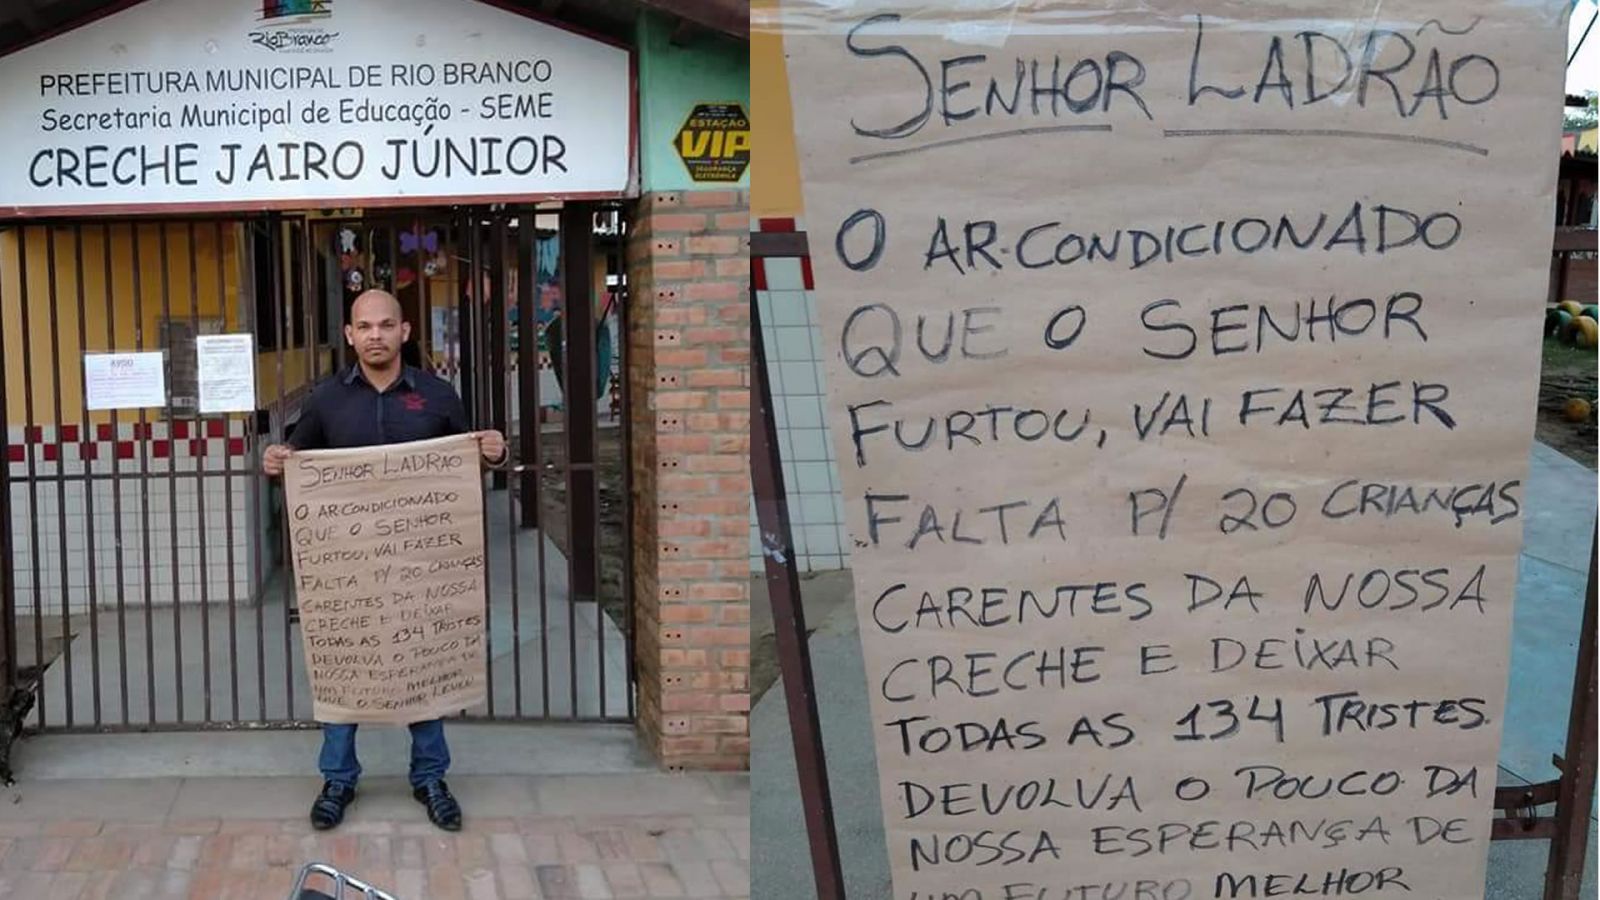 RioBranco
PREFEITURA MUNICIPAL DE RIO BRANCO
Secretaria Municipal de Educação - SEME
CRECHE JAIRO JÚNIOR
ESTAÇÃO
VIP
SEGURANÇA
ELETRÔNICA
AVISO
SENHOR LADRÃO
O AR-CONDICIONADO
QUE O SENHOR
FURTOU, VAI FAZER
FALTA P/ 20 CRIANÇAS
CARENTES DA NOSSA
CRECHE E DEIXAR
TODAS AS 134 TRISTES
DEVOLVA O POUCO DA
NOSSA ESPERANÇA DE
UM FUTURO MELHOR
QUE O SENHOR LEVOU
SENHOR LADRÃO
O AR-CONDICIONADO
QUE O SENHOR
FURTOU, VAI FAZER
FALTA P/ 20 CRIANÇAS
CARENTES DA NOSSA
CRECHE E DEIXAR
TODAS AS 134 TRISTES.
DEVOLVA O POUCO DA
NOSSA ESPERANÇA DE
UM FUTURO MELHOR